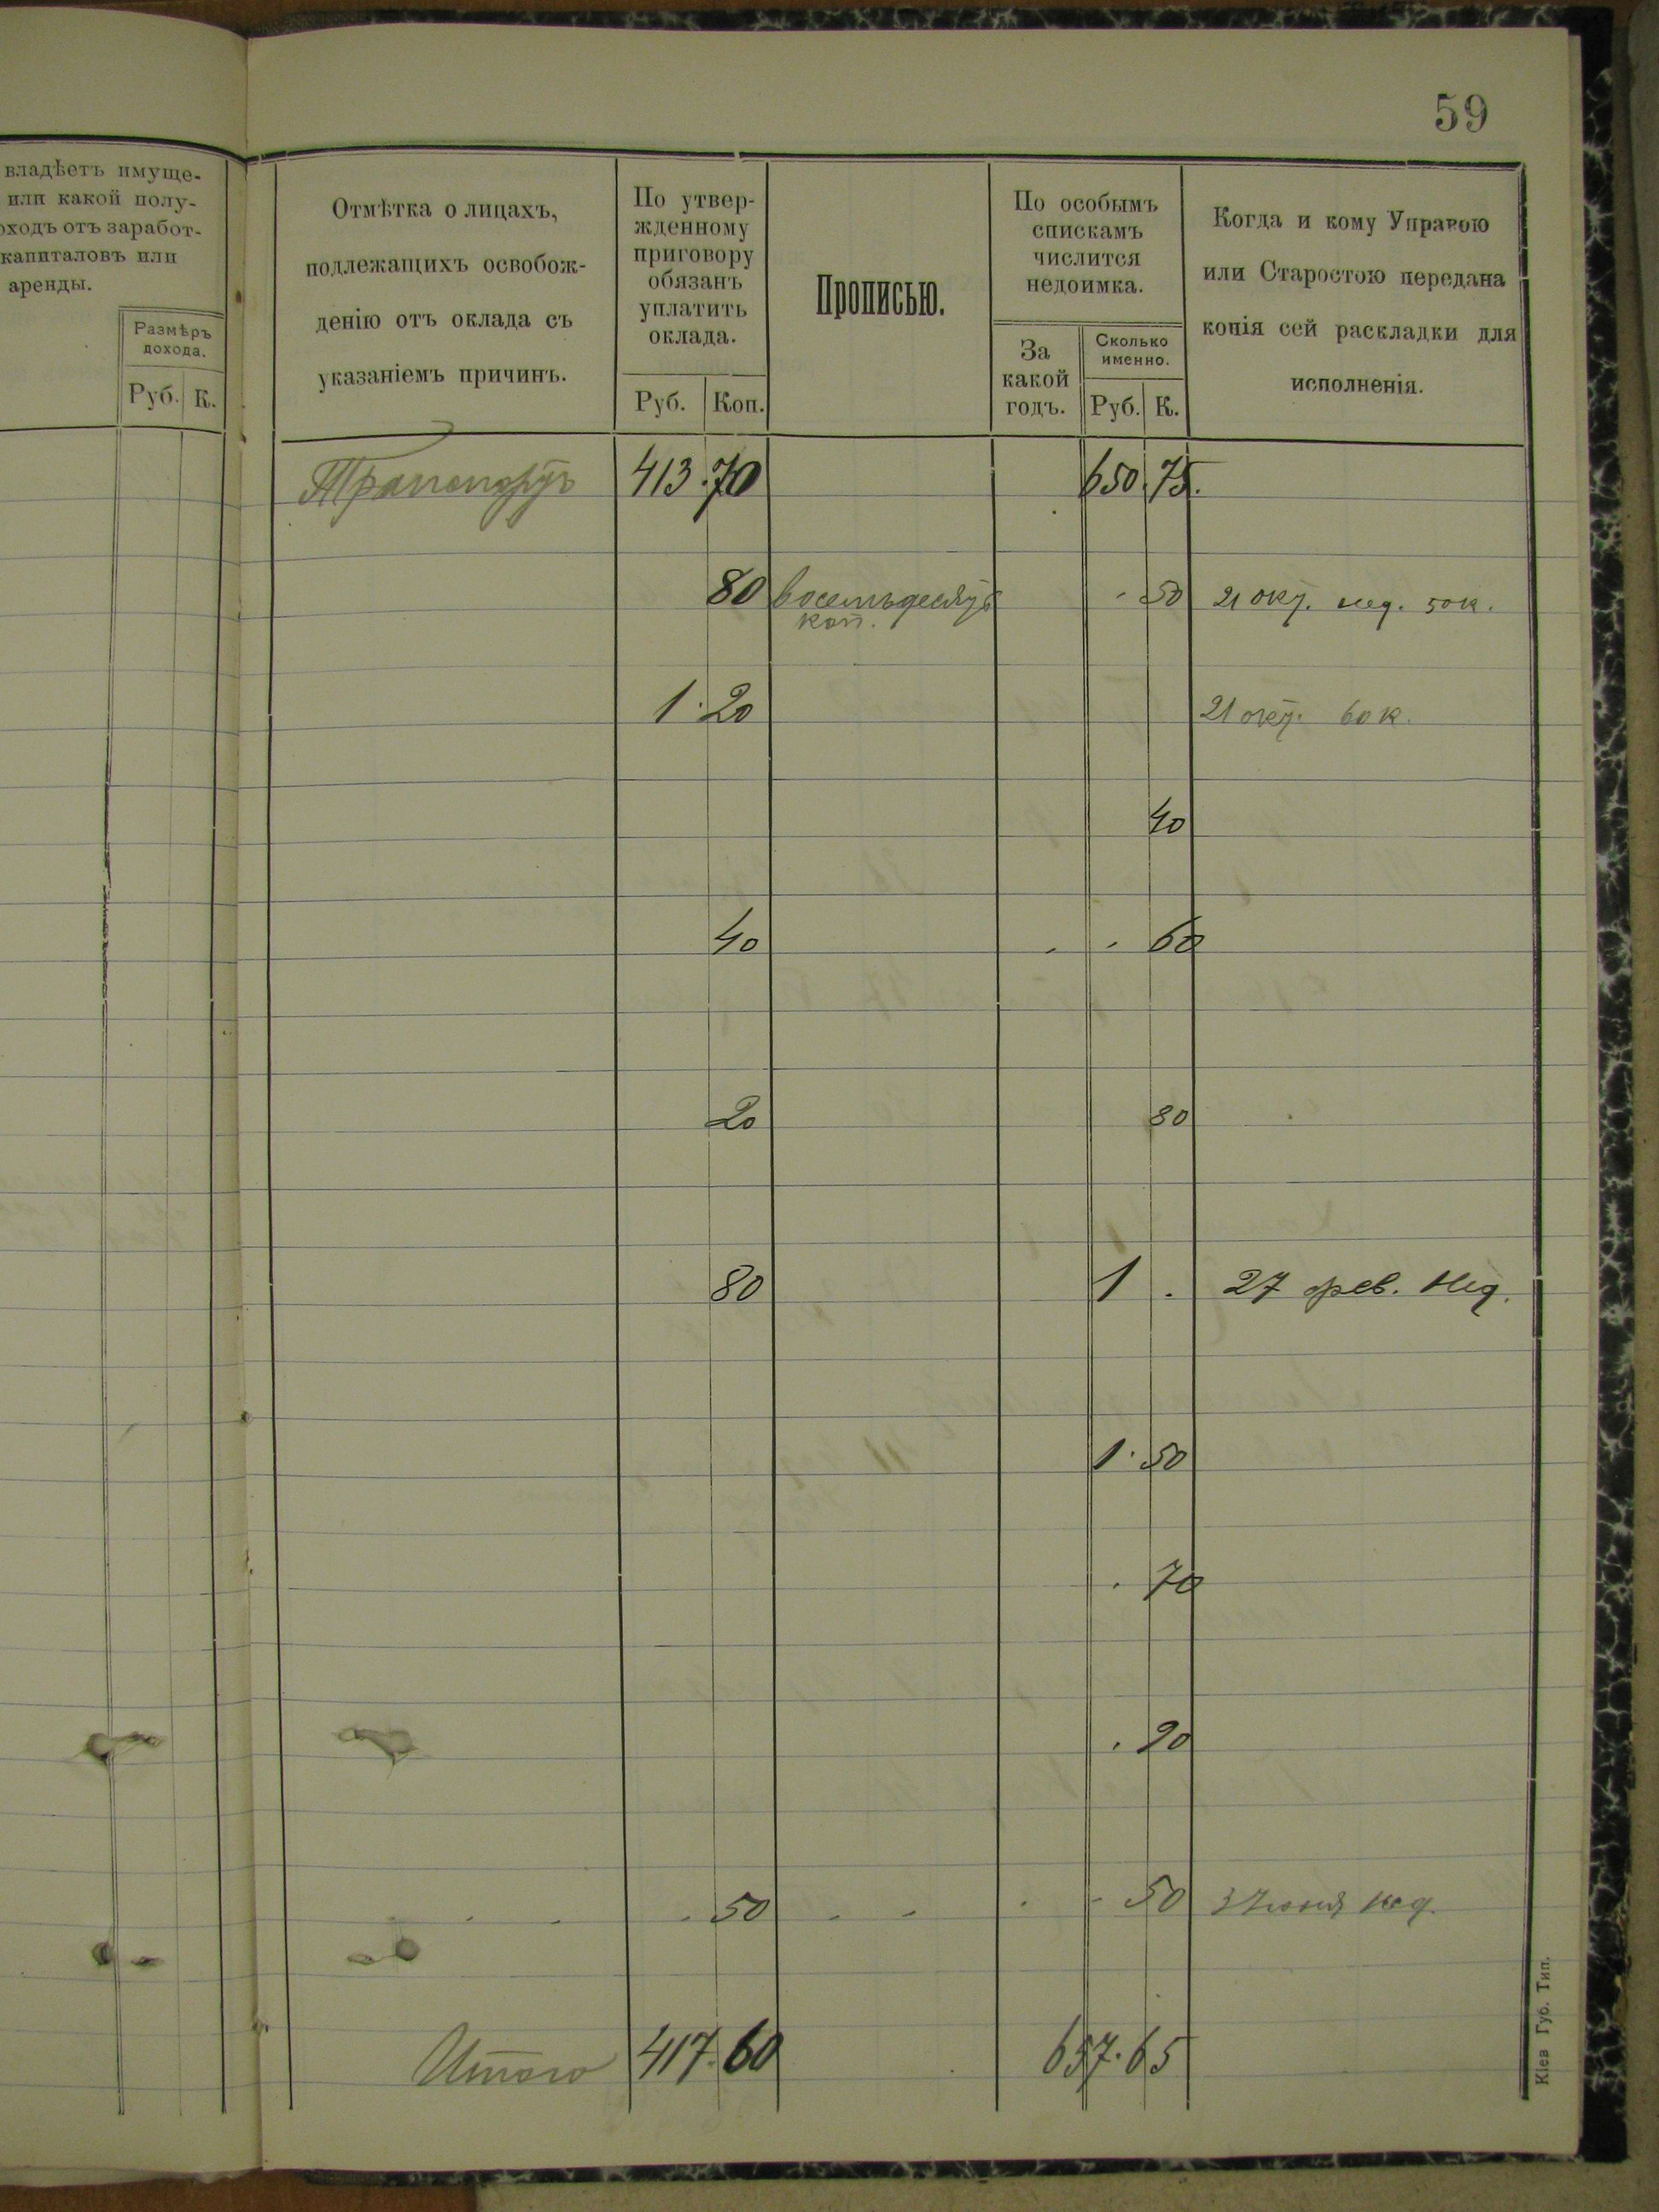 59
владѣетъ имуще-
или какой полу-
оходъ отъ заработ-
капиталовъ или
аренды.
Размѣръ
дохода.
Руб. К.
Отмѣтка о лицахъ,
подлежащихъ освобож-
денію отъ оклада съ
указаніемъ причинъ.
По утвер-
жденному
приговору
обязанъ
уплатить
оклада.
Руб. Коп.
Прописью.
По особымъ
спискамъ
числится
недоимка.
За
какой
годъ.
Сколько
именно.
Руб. К.
Когда и кому Управою
или Старостою передана
копія сей раскладки для
исполненія.
Транспортъ 413.70 650.75.
80 восемьдесятъ - 50 21 окт. нед. 50 к.
коп.
1.20 21 окт. 60 к.
40
40 - - 60
20 80
80 1 . 27 фев. Нед.
1.50
. 70
. 90
- - - 50 - - - - 50 3 Iюня нед.
Итого 417.60 657.65
Кіев Губ. Тип.